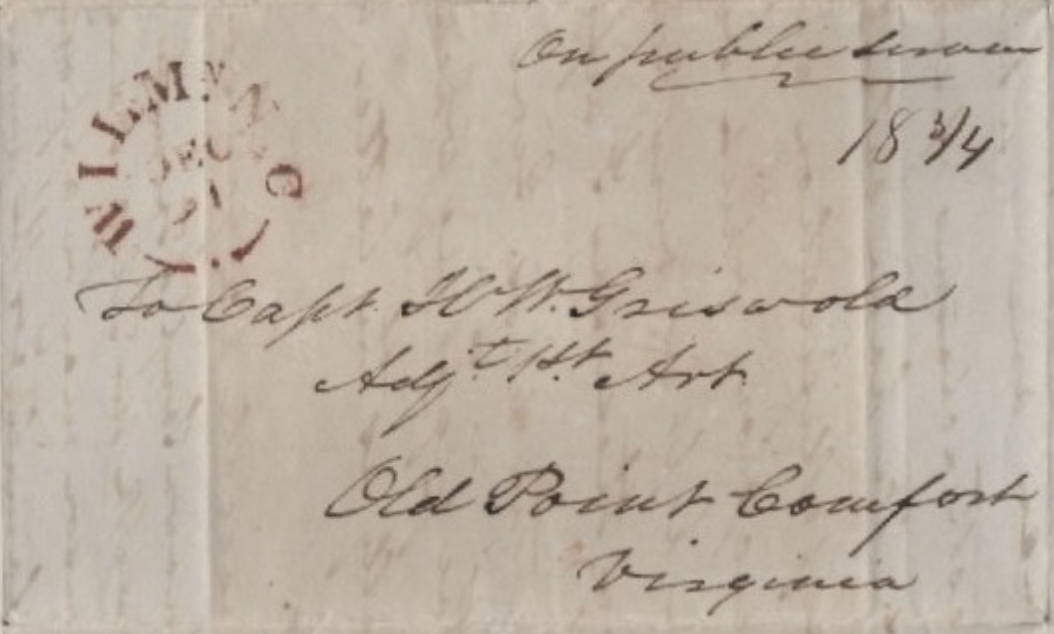 On public service
18 3/4
WILM. N. C
DEC
21
To Capt. H W. Griswold
Adjt 1st Art.
Old Point Comfort
Virginia